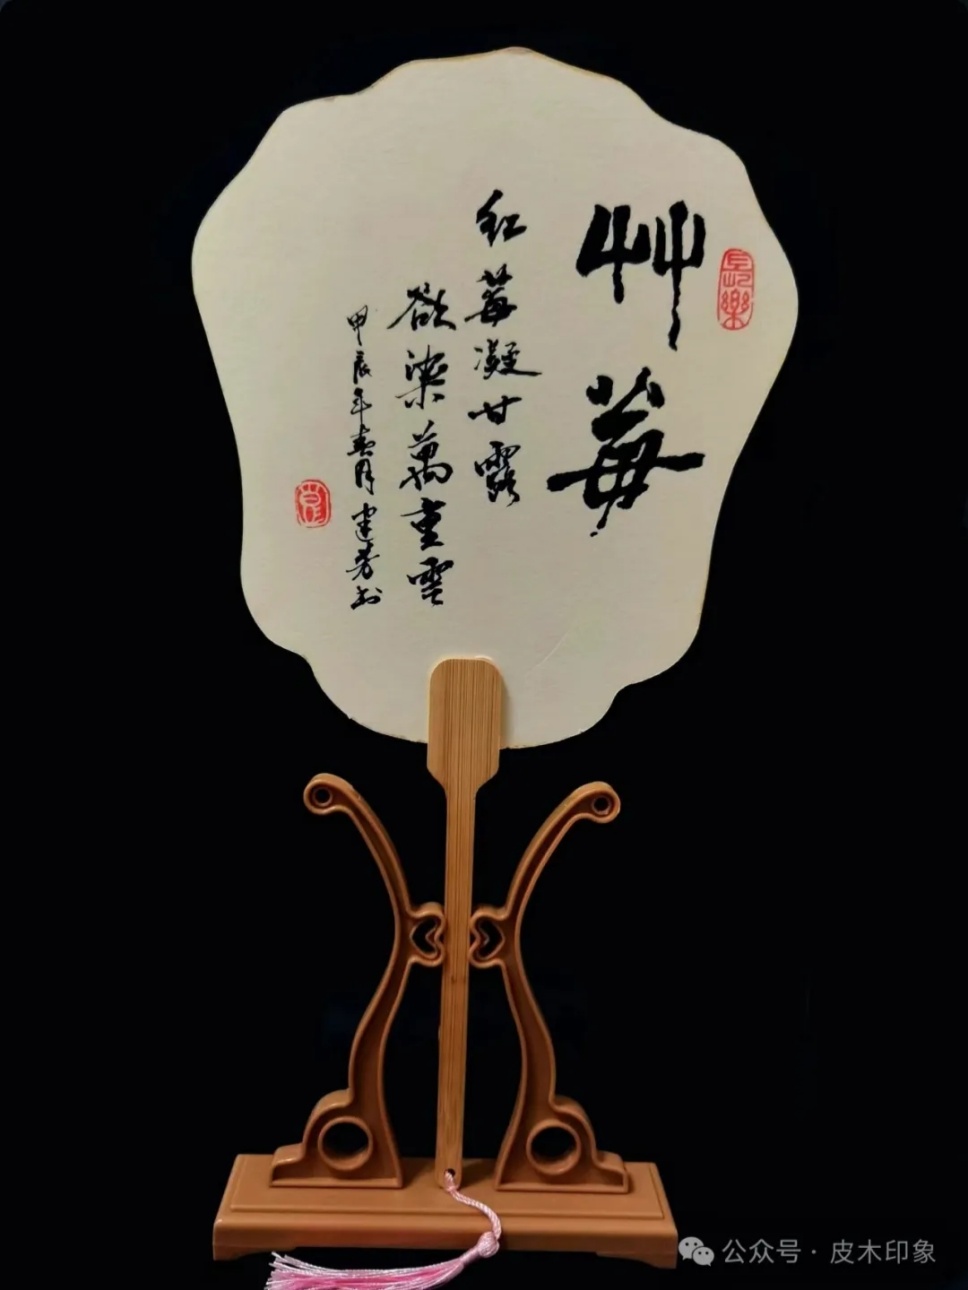 艸莓
红莓凝甘露
欲染萬重雲
甲辰年春月建芳书
公众号·皮木印象